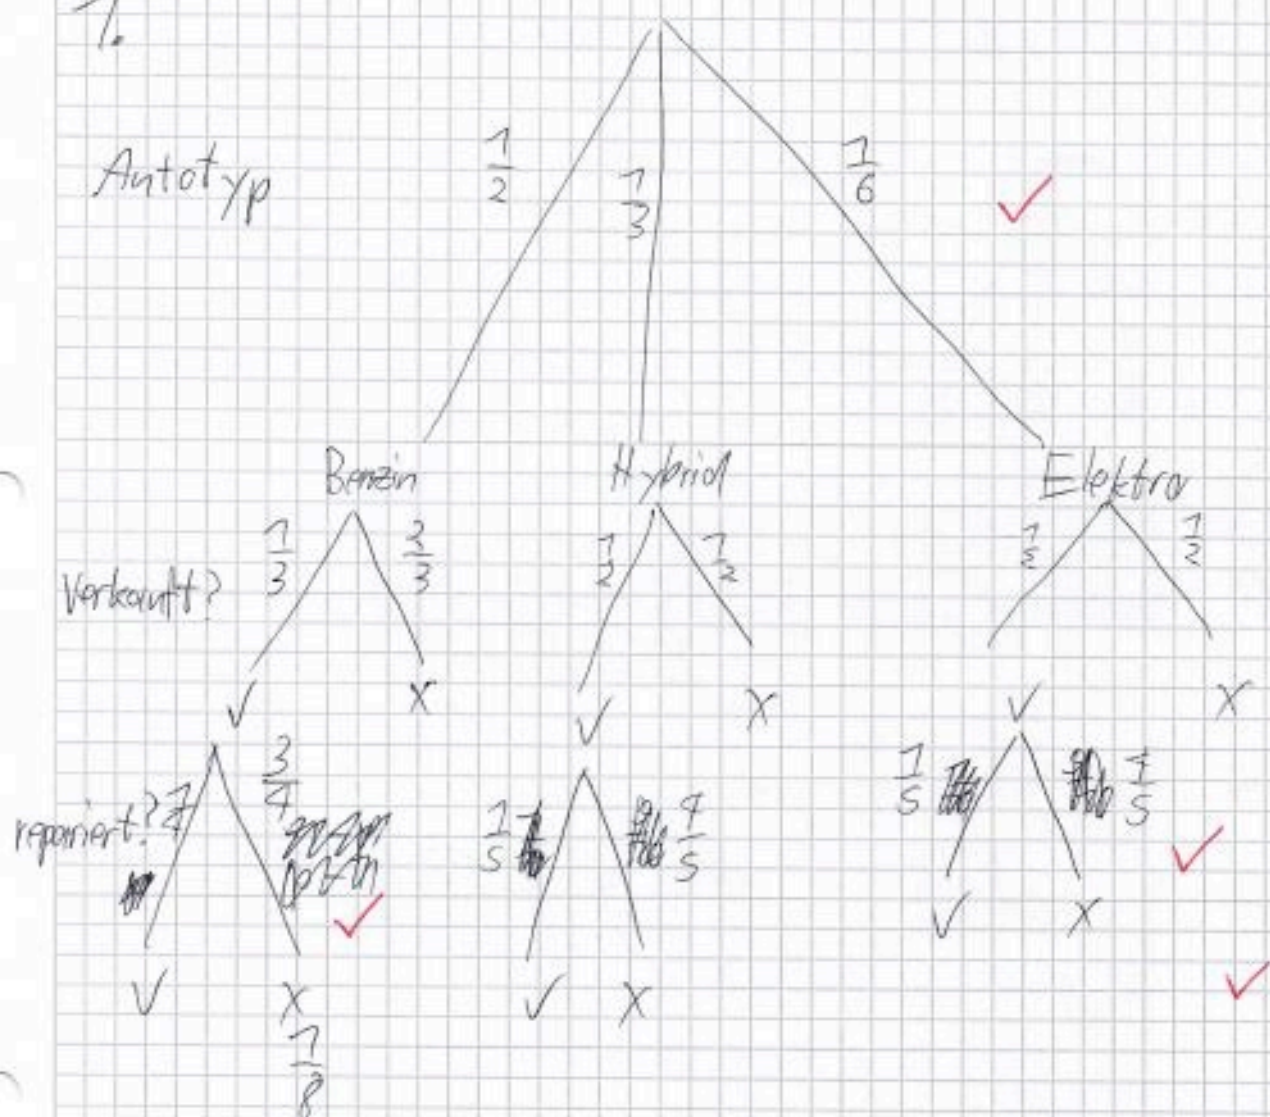 1.
Autotyp
1/2
1/3
1/6
Benzin
Hybrid
Elektro
verkauft?
1/3
2/3
1/2
1/2
1/2
1/2
✓
X
✓
X
✓
X
repariert?
1/4
3/4
1/5
4/5
1/5
4/5
✓
X
✓
X
✓
X
1/8